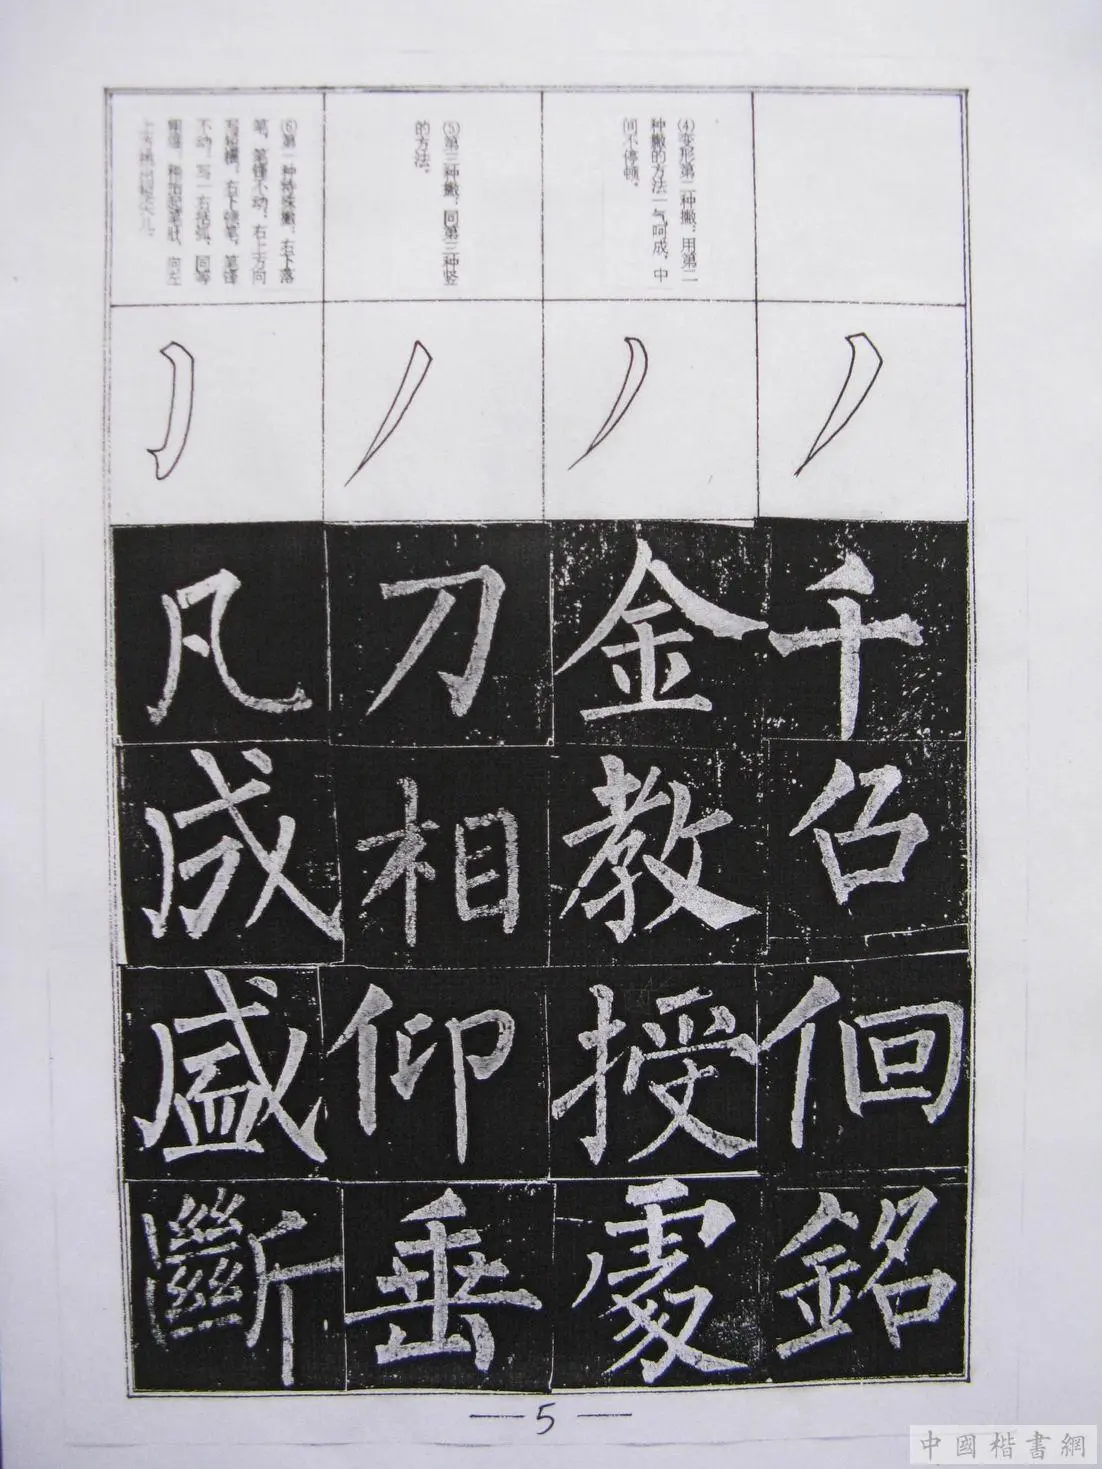 千
召
佪
銘
④变形第二种撇，用第二
种撇的方法一气呵成，中
间不停顿。
金
教
授
處
⑤第三种撇，同第三种竖
的方法。
刀
相
仰
垂
⑥第一种特殊撇，右下落
笔，笔锋不动，右上方向
写短横，右下顿笔，笔锋
不动，写一右括弧，同等
抬起笔肚，向左
上方挑出短尖儿。
凡
成
盛
斷
— 5 —
中國楷書網